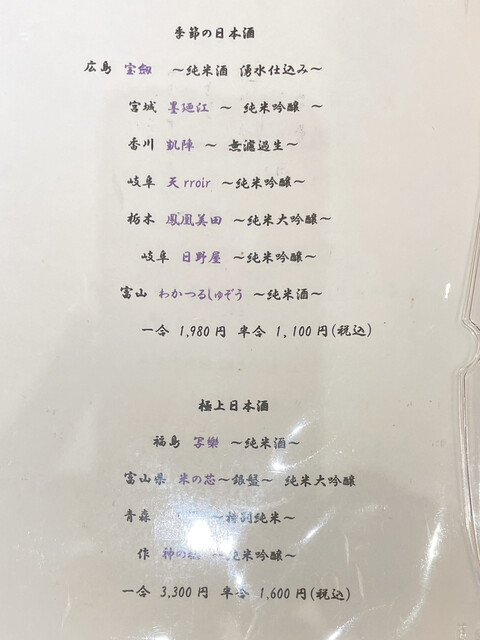 季節の日本酒
広島 宝剱 ～純米酒 湧水仕込み～
宮城 墨廼江 ～ 純米吟醸 ～
香川 凱陣 ～ 無濾過生～
岐阜 天rroir ～純米吟醸～
栃木 鳳凰美田 ～純米大吟醸～
岐阜 日野屋 ～純米吟醸～
富山 わかつるしゅぞう ～純米酒～
一合 1,980円 半合 1,100円(税込)
極上日本酒
福島 写樂 ～純米酒～
富山県 米の芯～銀盤～ 純米大吟醸
青森 ～特別純米～
作 神の ～純米吟醸～
一合 3,300円 半合 1,600円(税込)